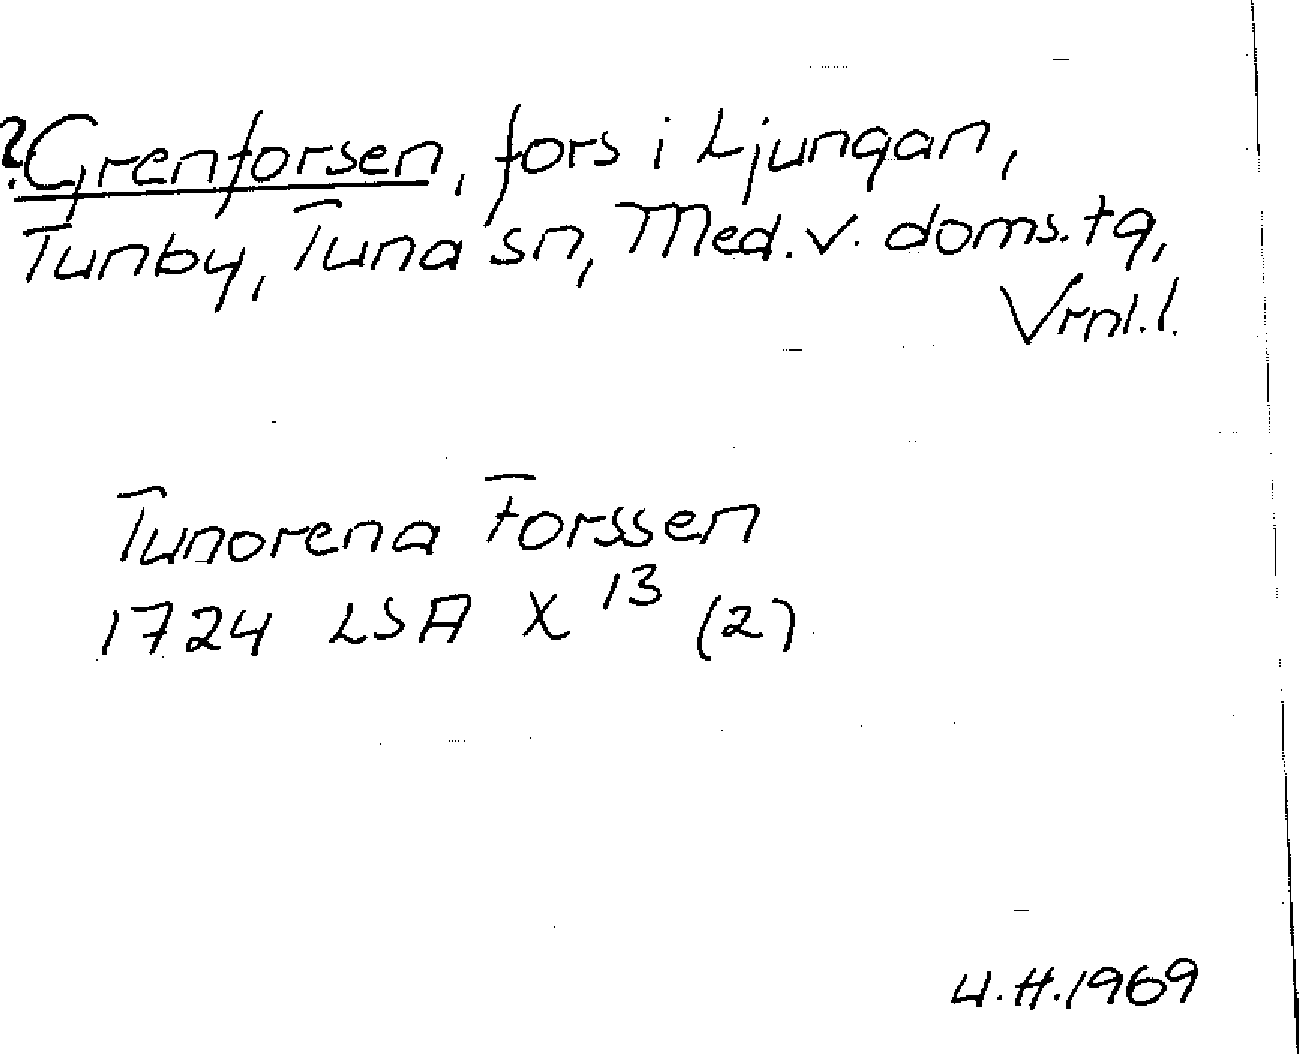 ?Grenforsen, fors i Ljungan,
Tunby, Tuna sn, Med. v. doms. tg,
Vrnl. l.
Tunorena Forssen
1724 LSA X¹³ (2)
U.H.1969